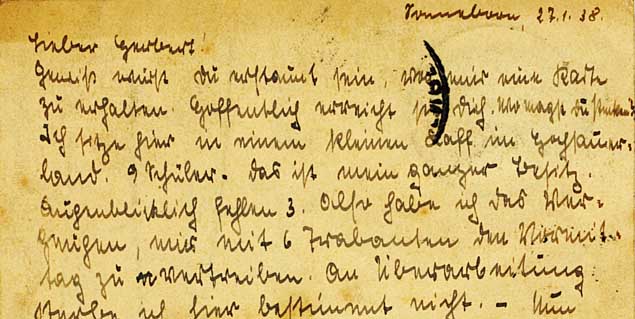 Sonneborn, 27.1.38.
Lieber Herbert!
Gewiß wirst du erstaunt sein, von mir eine Karte
zu erhalten. Hoffentlich erreicht sie dich. Wo magst du stecken?
Ich sitze hier in einem kleinen Kaff im Hochsauer-
land. 9 Schüler. das ist mein ganzer Besitz.
Augenblicklich fehlen 3. Also habe ich das Ver-
gnügen, mir mit 6 Trabanten den Vormit-
tag zu vertreiben. An Überarbeitung
sterbe ich hier bestimmt nicht. – Nun